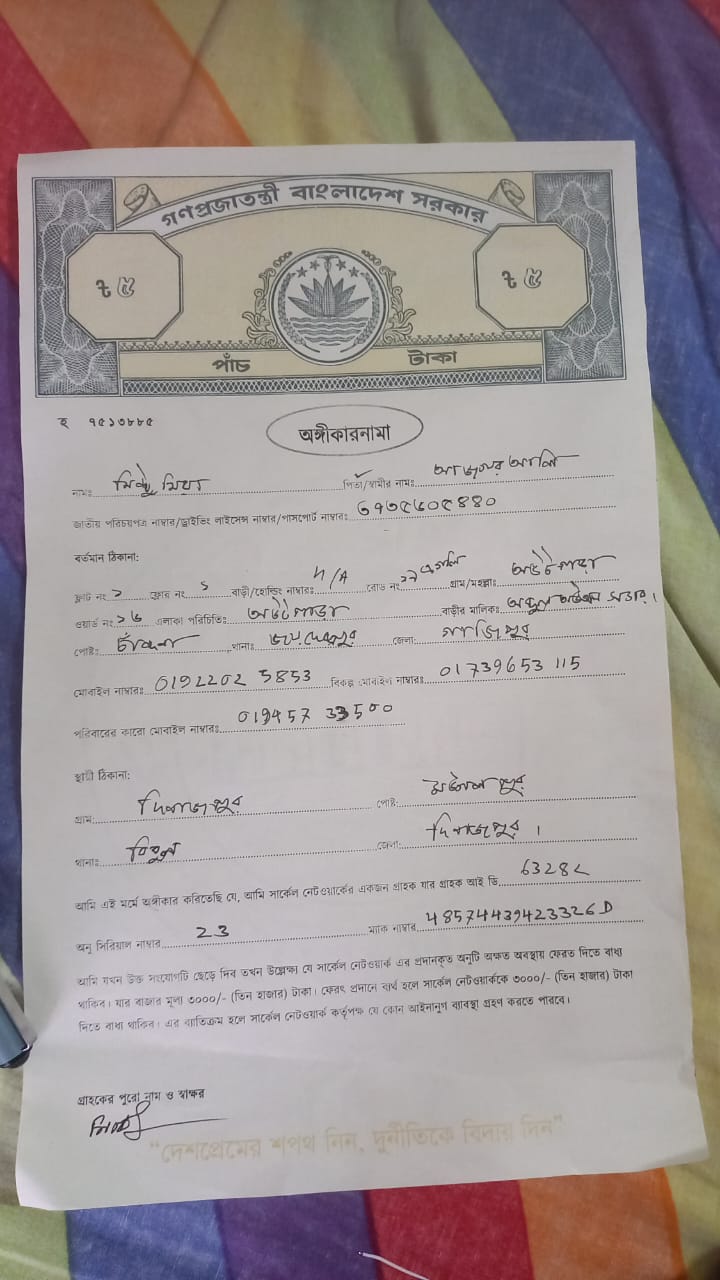 গণপ্রজাতন্ত্রী বাংলাদেশ সরকার
৳ ৫ ৳ ৫
পাঁচ টাকা
হ ৭৫১৩৮৮৫
অঙ্গীকারনামা
নামঃ মিন্টু মিয়া পিতা/স্বামীর নামঃ আলি
জাতীয় পরিচয়পত্র নাম্বার/ড্রাইভিং লাইসেন্স নাম্বার/পাসপোর্ট নাম্বারঃ
বর্তমান ঠিকানা:
ফ্লাট নং ২ ফ্লোর নং বাড়ী/হোল্ডিং নাম্বারঃ রোড নং গ্রাম/মহল্লাঃ
ওয়ার্ড নং ১৬ এলাকা পরিচিতিঃ বাড়ীর মালিকঃ
পোষ্ট: থানাঃ জয়দেবপুর জেলা: গাজিপুর
মোবাইল নাম্বারঃ 0192202 5853 বিকল্প মোবাইল নাম্বারঃ 01739653 115
পরিবারের কারো মোবাইল নাম্বারঃ 019457 33500
স্থায়ী ঠিকানা:
গ্রাম: দিনাজপুর পোষ্ট:
থানাঃ জেলা: দিনাজপুর।
আমি এই মর্মে অঙ্গীকার করিতেছি যে, আমি সার্কেল নেটওয়ার্কের একজন গ্রাহক যার গ্রাহক আই ডি
অনু সিরিয়াল নাম্বার 23 ম্যাক নাম্বার 48574439423326D
আমি যখন উক্ত সংযোগটি ছেড়ে দিব তখন উল্লেক্ষ্য যে সার্কেল নেটওয়ার্ক এর প্রদানকৃত অনুটি অক্ষত অবস্থায় ফেরত দিতে বাধ্য
থাকিব। যার বাজার মূল্য ৩০০০/- (তিন হাজার) টাকা। ফেরৎ প্রদানে ব্যর্থ হলে সার্কেল নেটওয়ার্ককে ৩০০০/- (তিন হাজার) টাকা
দিতে বাধ্য থাকিব। এর ব্যতিক্রম হলে সার্কেল নেটওয়ার্ক কর্তৃপক্ষ যে কোন আইনানুগ ব্যাবস্থা গ্রহণ করতে পারবে।
গ্রাহকের পুরো নাম ও স্বাক্ষর
"দেশপ্রেমের শপথ নিন, দুর্নীতিকে বিদায় দিন"